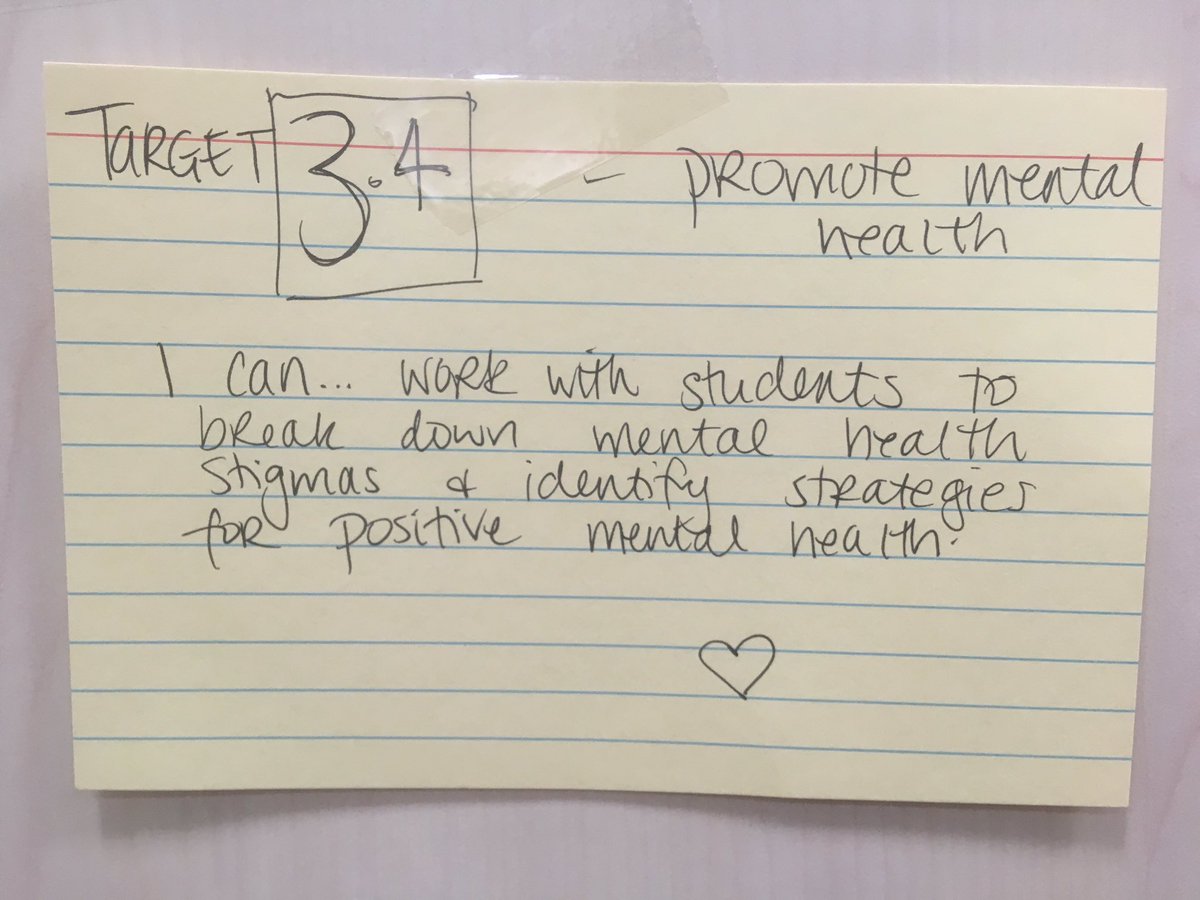 TARGET 3.4 - promote mental
health
I can... work with students to
break down mental health
stigmas & identify strategies
for positive mental health.